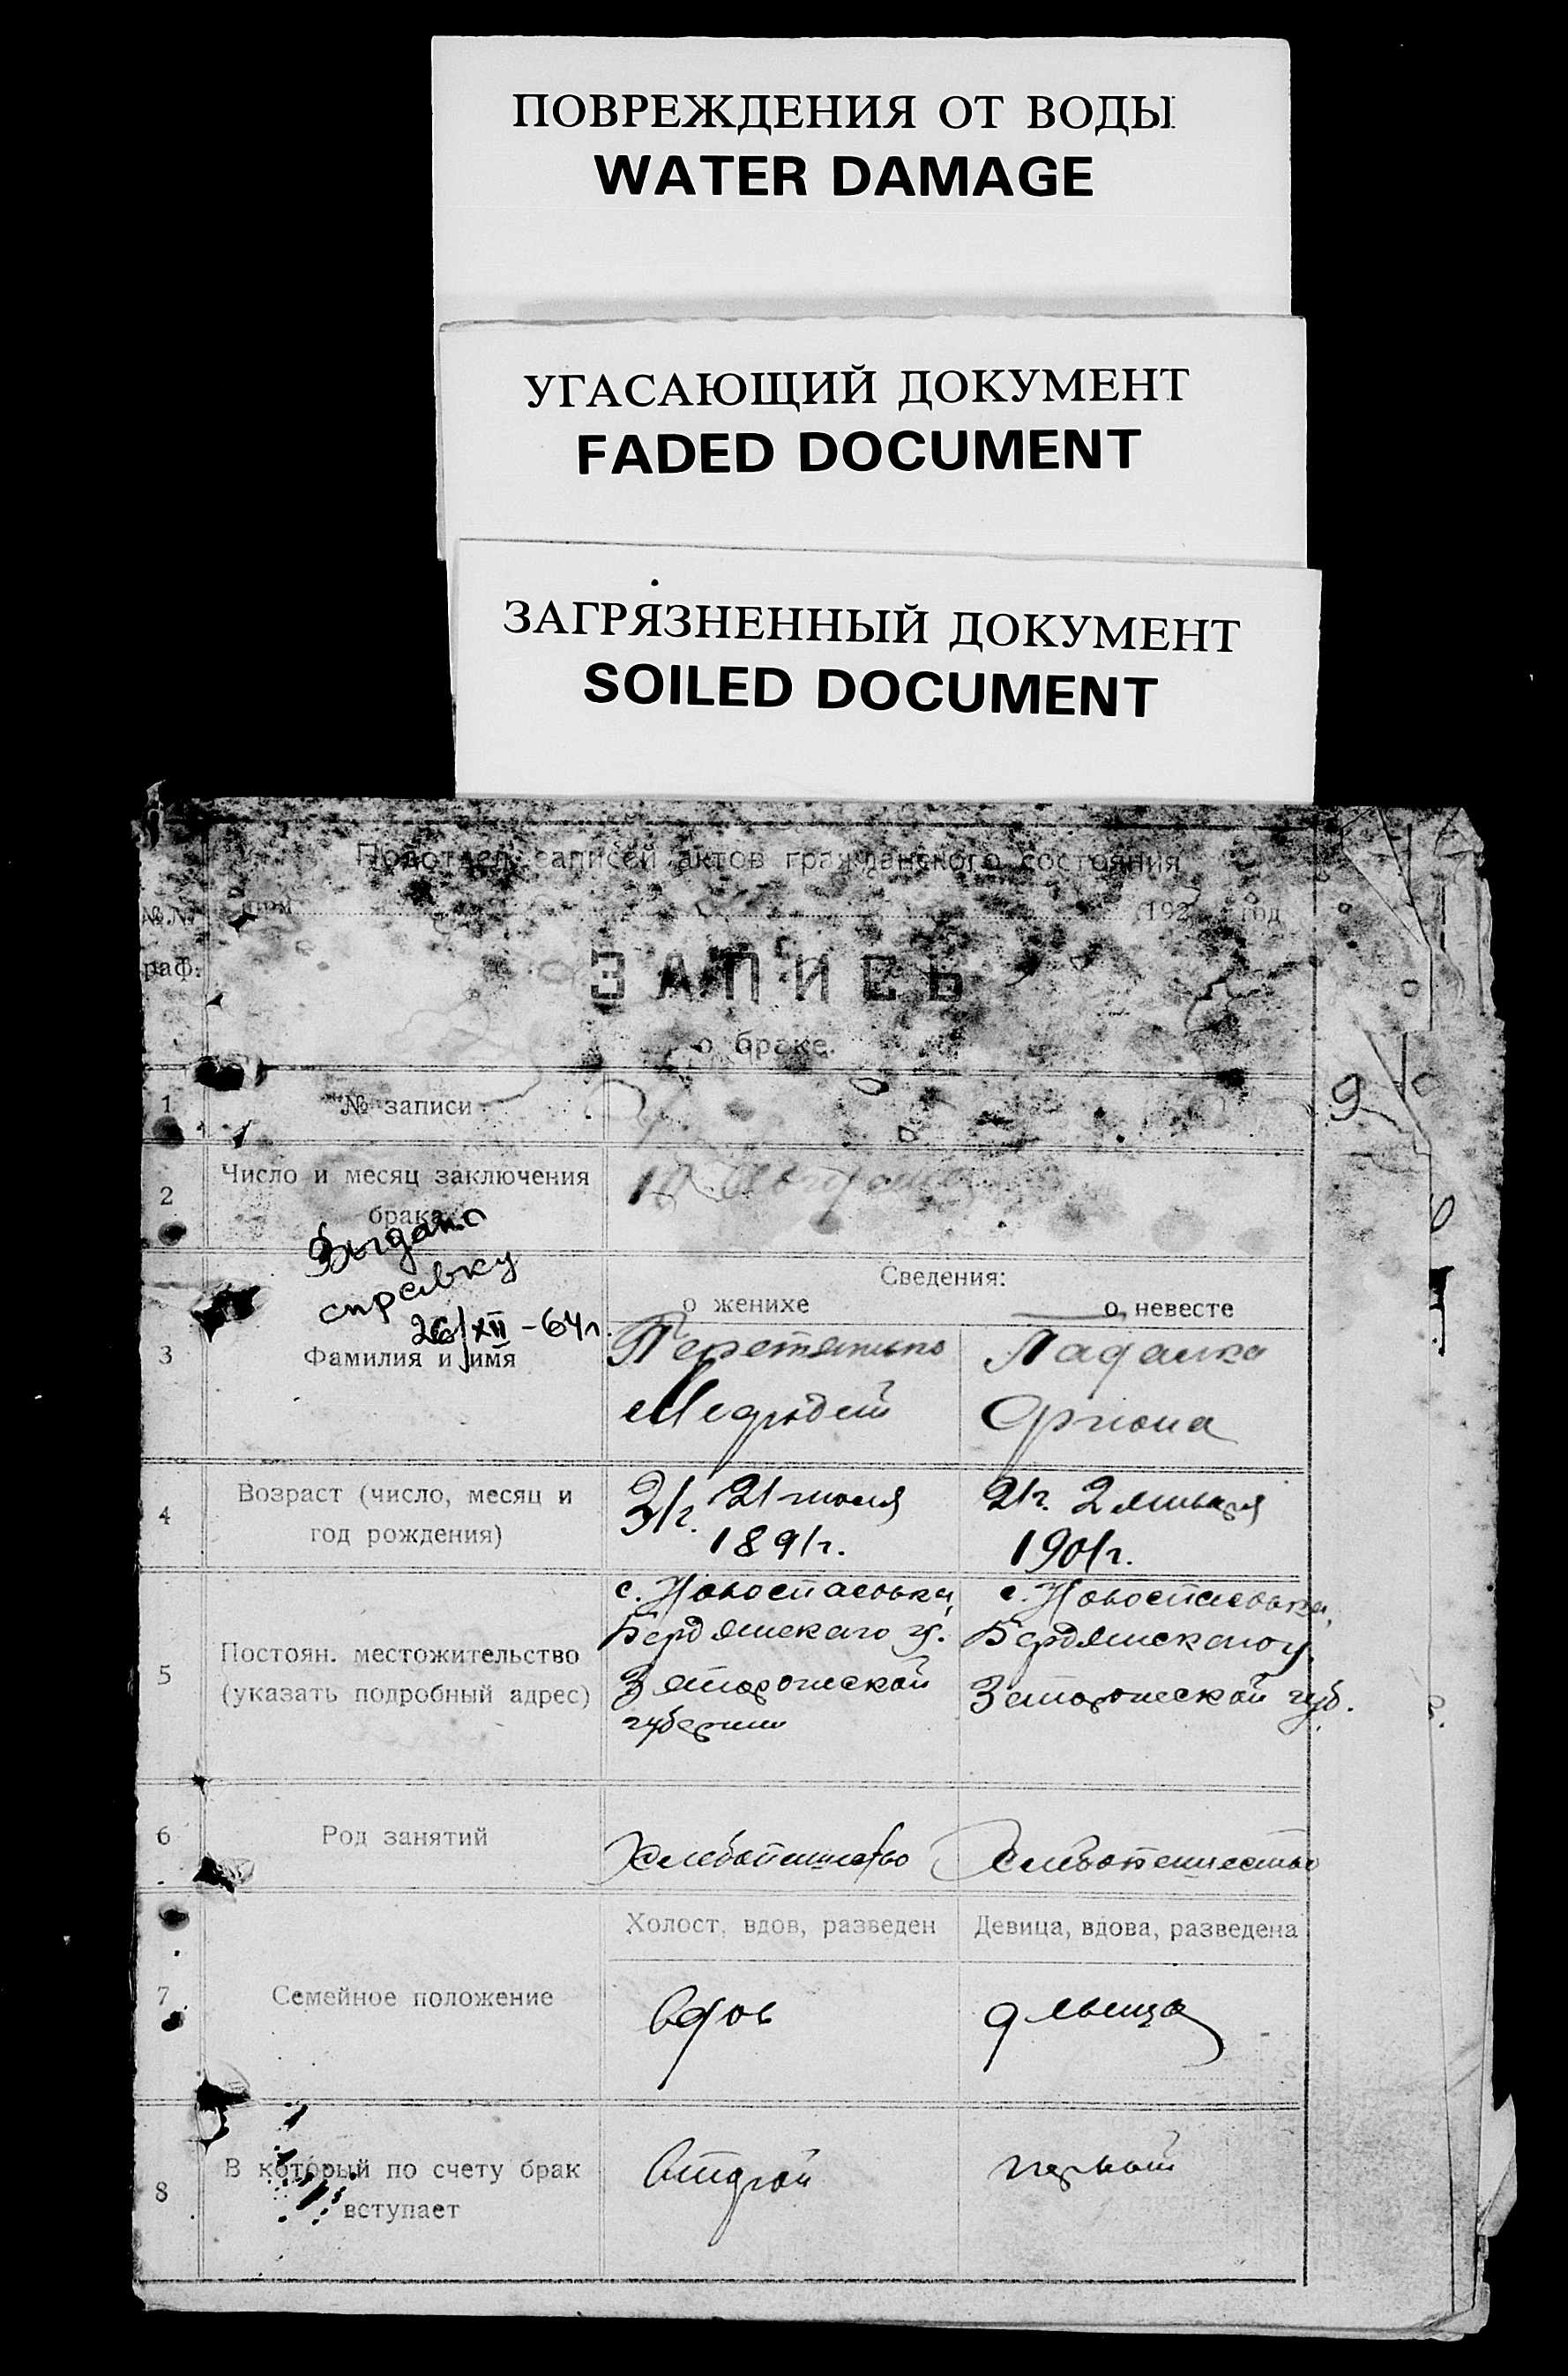 ПОВРЕЖДЕНИЯ ОТ ВОДЫ
WATER DAMAGE
УГАСАЮЩИЙ ДОКУМЕНТ
FADED DOCUMENT
ЗАГРЯЗНЕННЫЙ ДОКУМЕНТ
SOILED DOCUMENT
Подотдел записей актов гражданского состояния
№№ при 192 год
раф.
ЗАПИСЬ
о браке.
1 № записи
9
2 Число и месяц заключения
брака
Выдано
справку
26/XII-64г.
Сведения:
о женихе о невесте
3 Фамилия и имя
Падалка
Мефодий
4 Возраст (число, месяц и
год рождения)
31г. 21 июля
1891г.
21г. 2 января
1901г.
5 Постоян. местожительство
(указать подробный адрес)
с. Новоспасовка,
Бердянскаго у.
Запорожской
губернии
с. Новоспасовка,
Бердянскаго у.
Запорожской губ.
6 Род занятий
Хлебопашество
Хлебопашество
Холост, вдов, разведен Девица, вдова, разведена
7 Семейное положение
вдов
девица
8 В который по счету брак
вступает
второй
первый